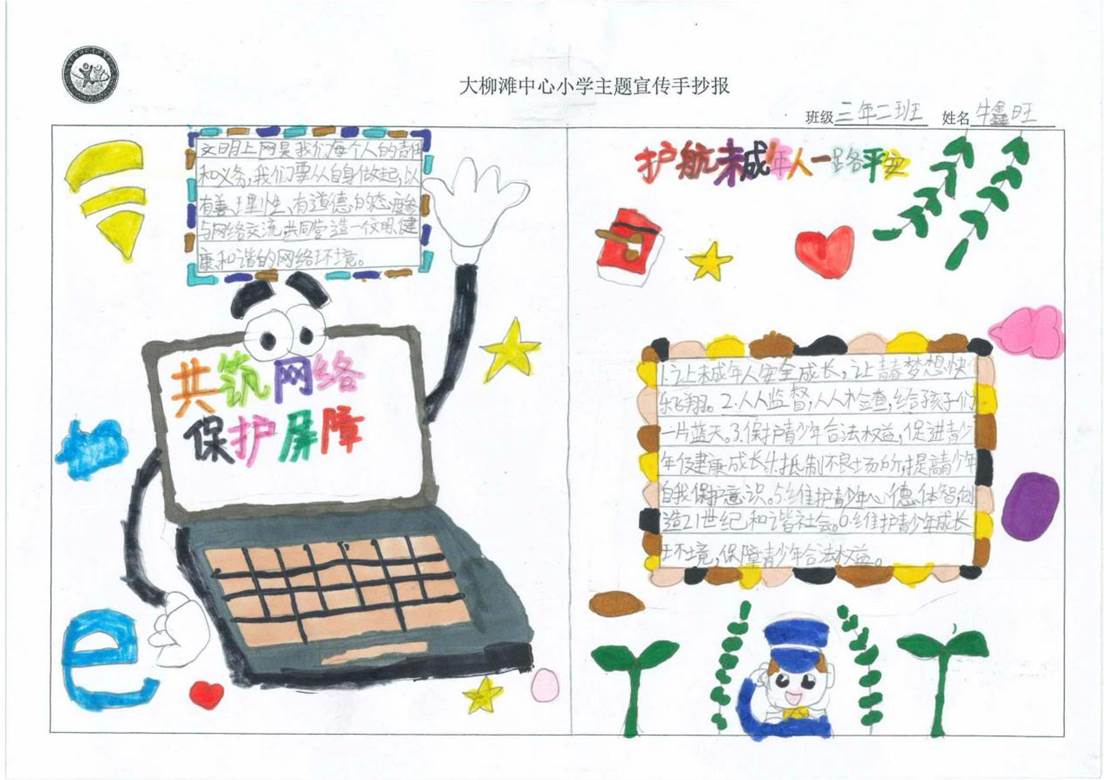 大柳滩中心小学主题宣传手抄报
班级三年二班 姓名牛鑫旺
文明上网是我们每个人的责任
和义务,我们要从自身做起,以
有善、理性、有道德的态度参
与网络交流,共同营造一仪明、健
康和谐的网络环境。
共筑网络
保护屏障
护航未成年人一路平安
1.让未成年人安全成长,让青春梦想快
乐飞翔。2.人人监督,人人检查,给孩子们
一片蓝天。3.保护青少年合法权益,促进青少
年健康成长4.抵制不良场所,提高青少年
自我保护意识。5.维护青少年心德体智,创
造21世纪和谐社会。6.维护青少年成长
环境,保障青少年合法权益。
e